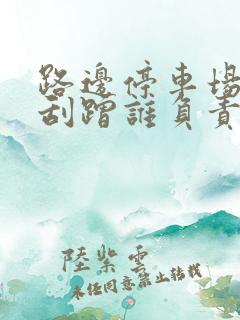 路邊停車場
刮蹭誰負責
陸紫雲
未经同意禁止转载